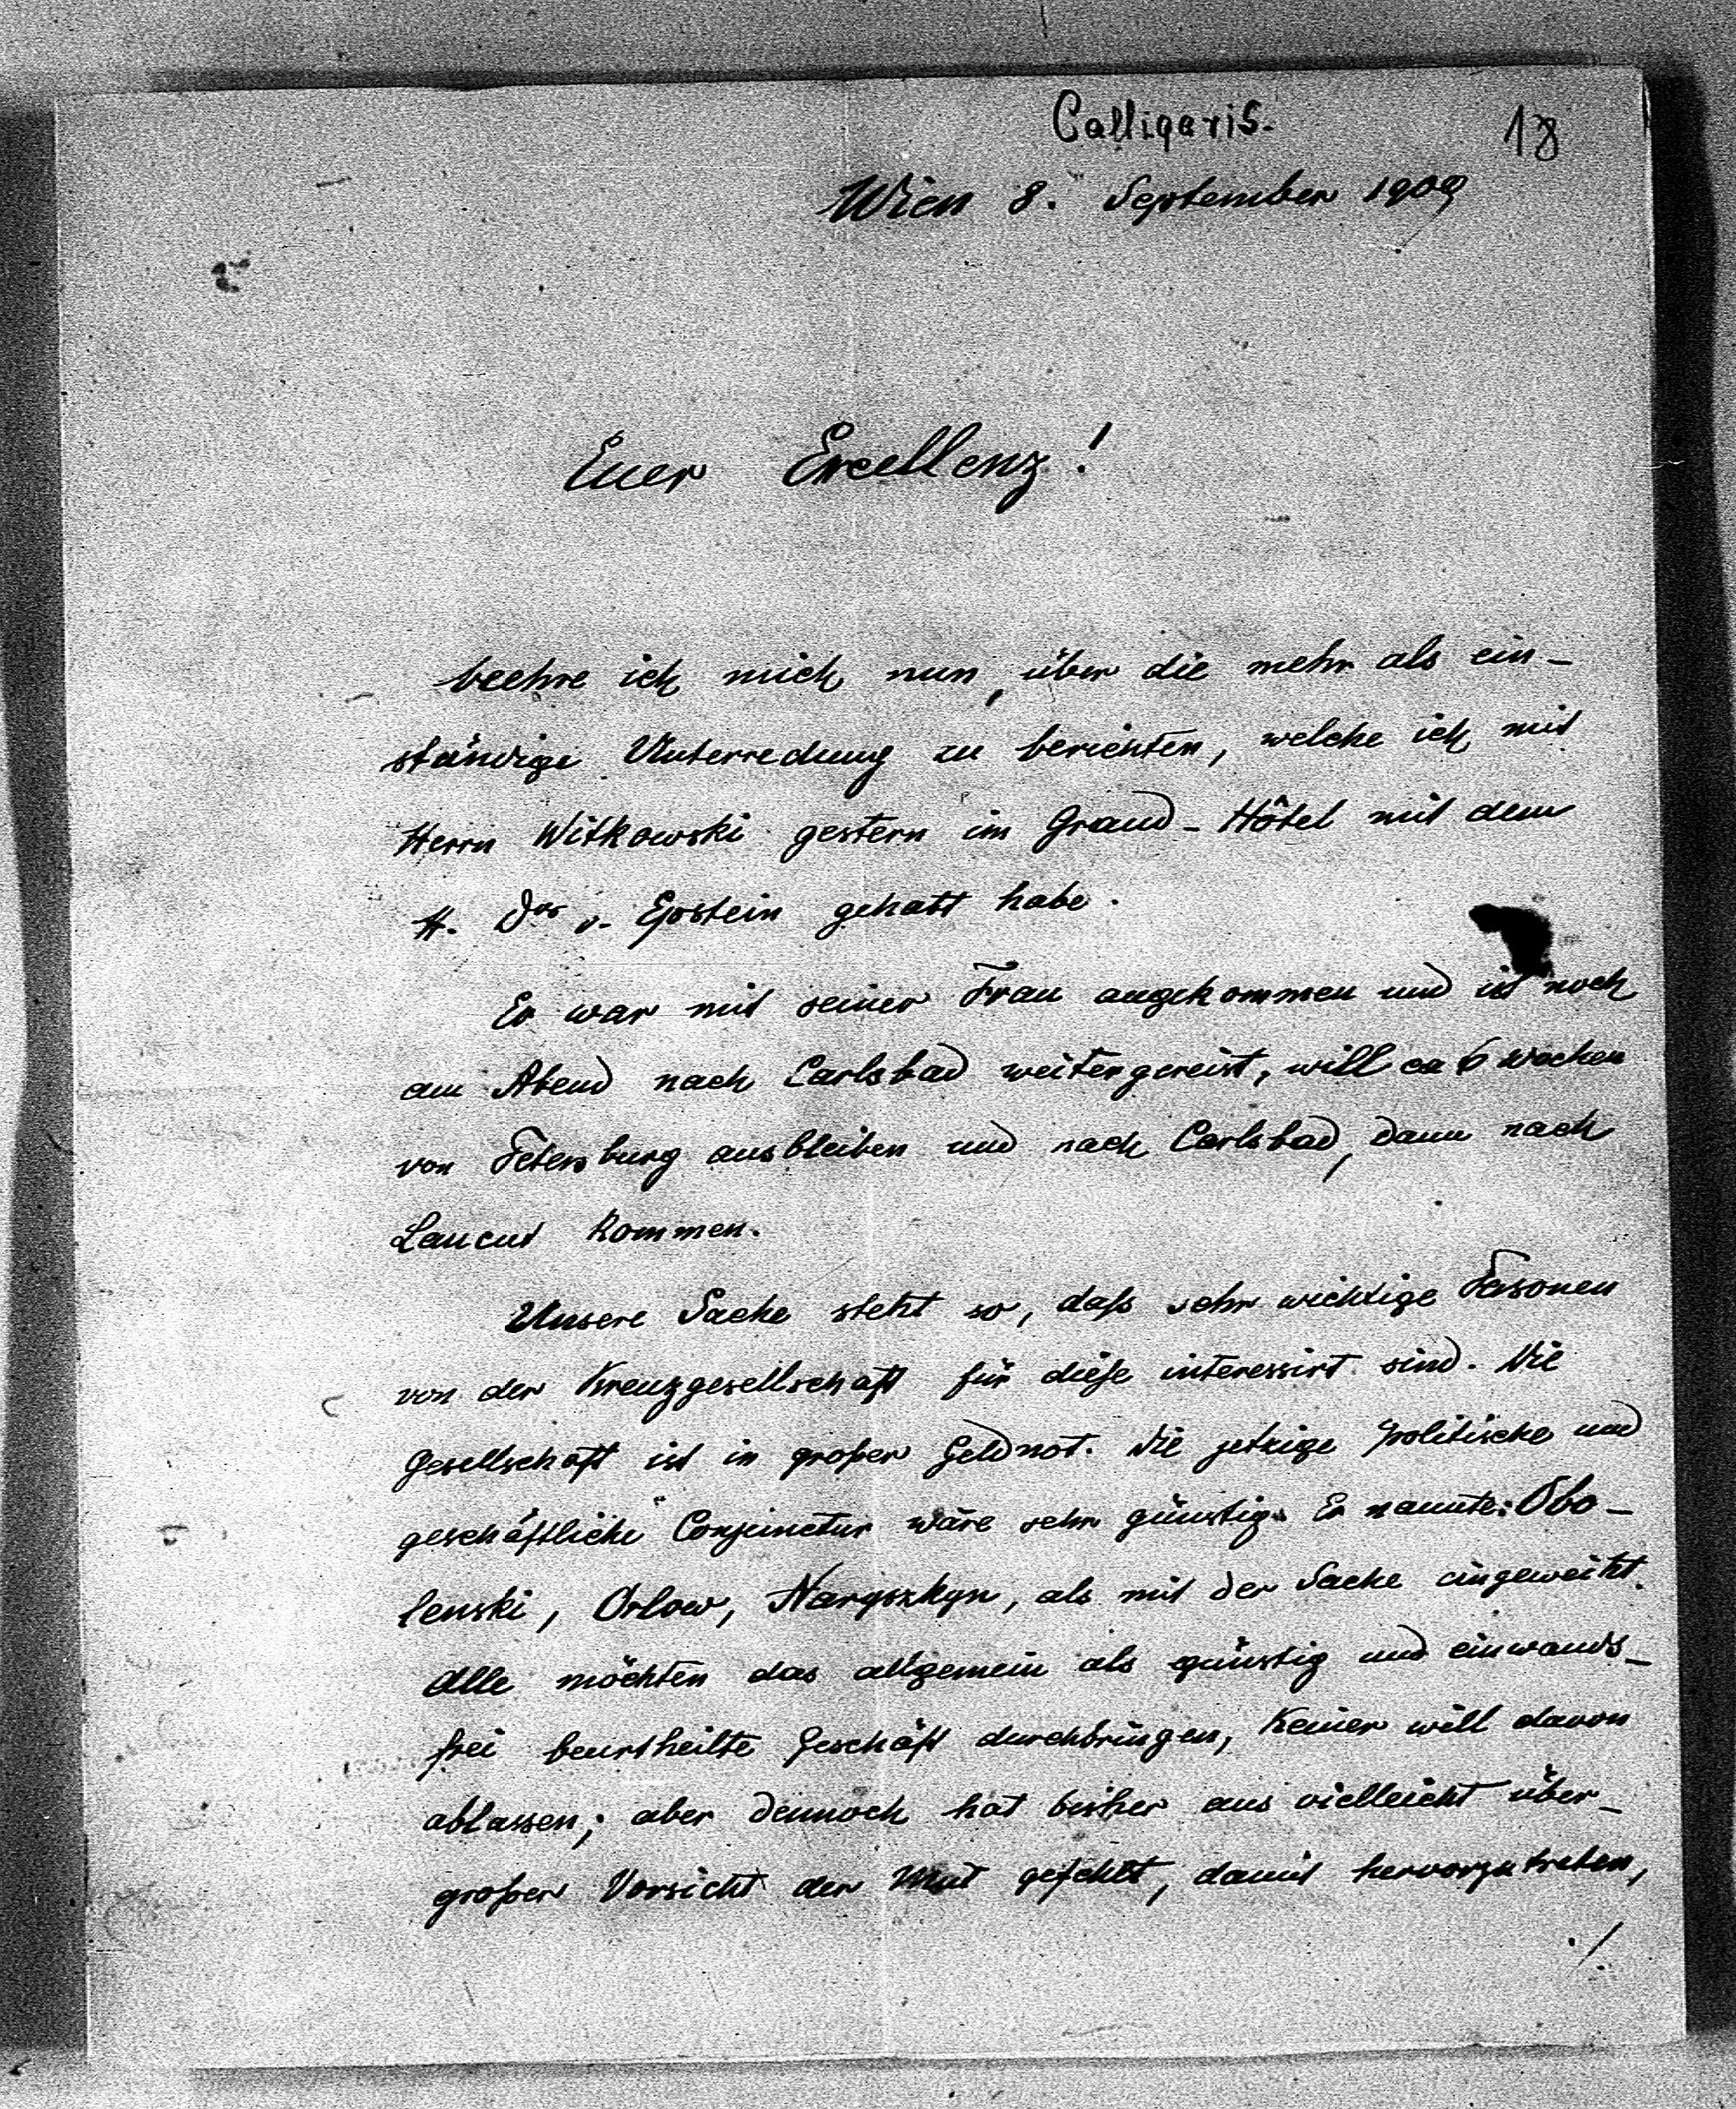 Calligaris.
18
Wien 8. September 1909
Euer Excellenz!
beehre ich mich nun, über die mehr als ein-
stündige Unterredung zu berichten, welche ich mit
Herrn Witkowski gestern im Grand-Hôtel mit dem
H. Dor v. Epstein gehabt habe.
Er war mit seiner Frau angekommen und ist noch
am Abend nach Carlsbad weitergereist, will ca 6 Wochen
von Petersburg ausbleiben und nach Carlsbad, dann nach
Lancut kommen.
Unsere Sache steht so, daß sehr wichtige Personen
von der Kreuzgesellschaft für diese interessirt sind. Die
Gesellschaft ist in großer Geldnot. Die jetzige politische und
geschäftliche Conjunctur wäre sehr günstig. Er nannte: Obo-
lenski, Orlow, Naryszkyn, als mit der Sache eingeweiht.
Alle möchten das allgemein als günstig und einwands-
frei beurtheilte Geschäft durchbringen, Keiner will davon
ablassen; aber dennoch hat bisher aus vielleicht über-
großer Vorsicht der Mut gefehlt, damit hervorzutreten,
./.